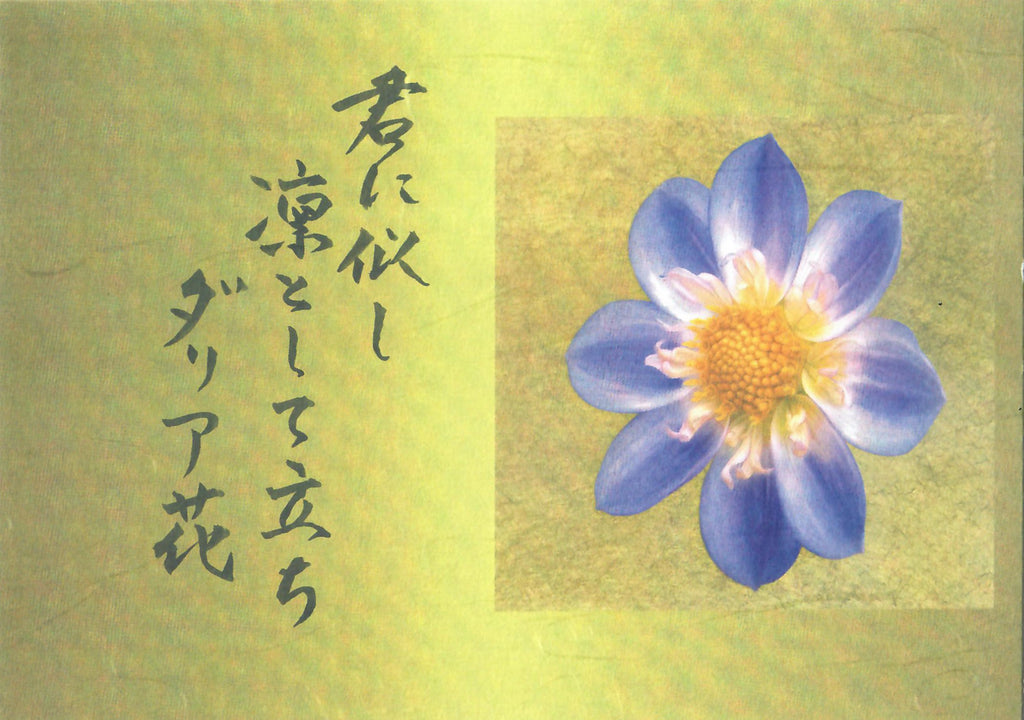 君に似し
凛として立ち
ダリア花